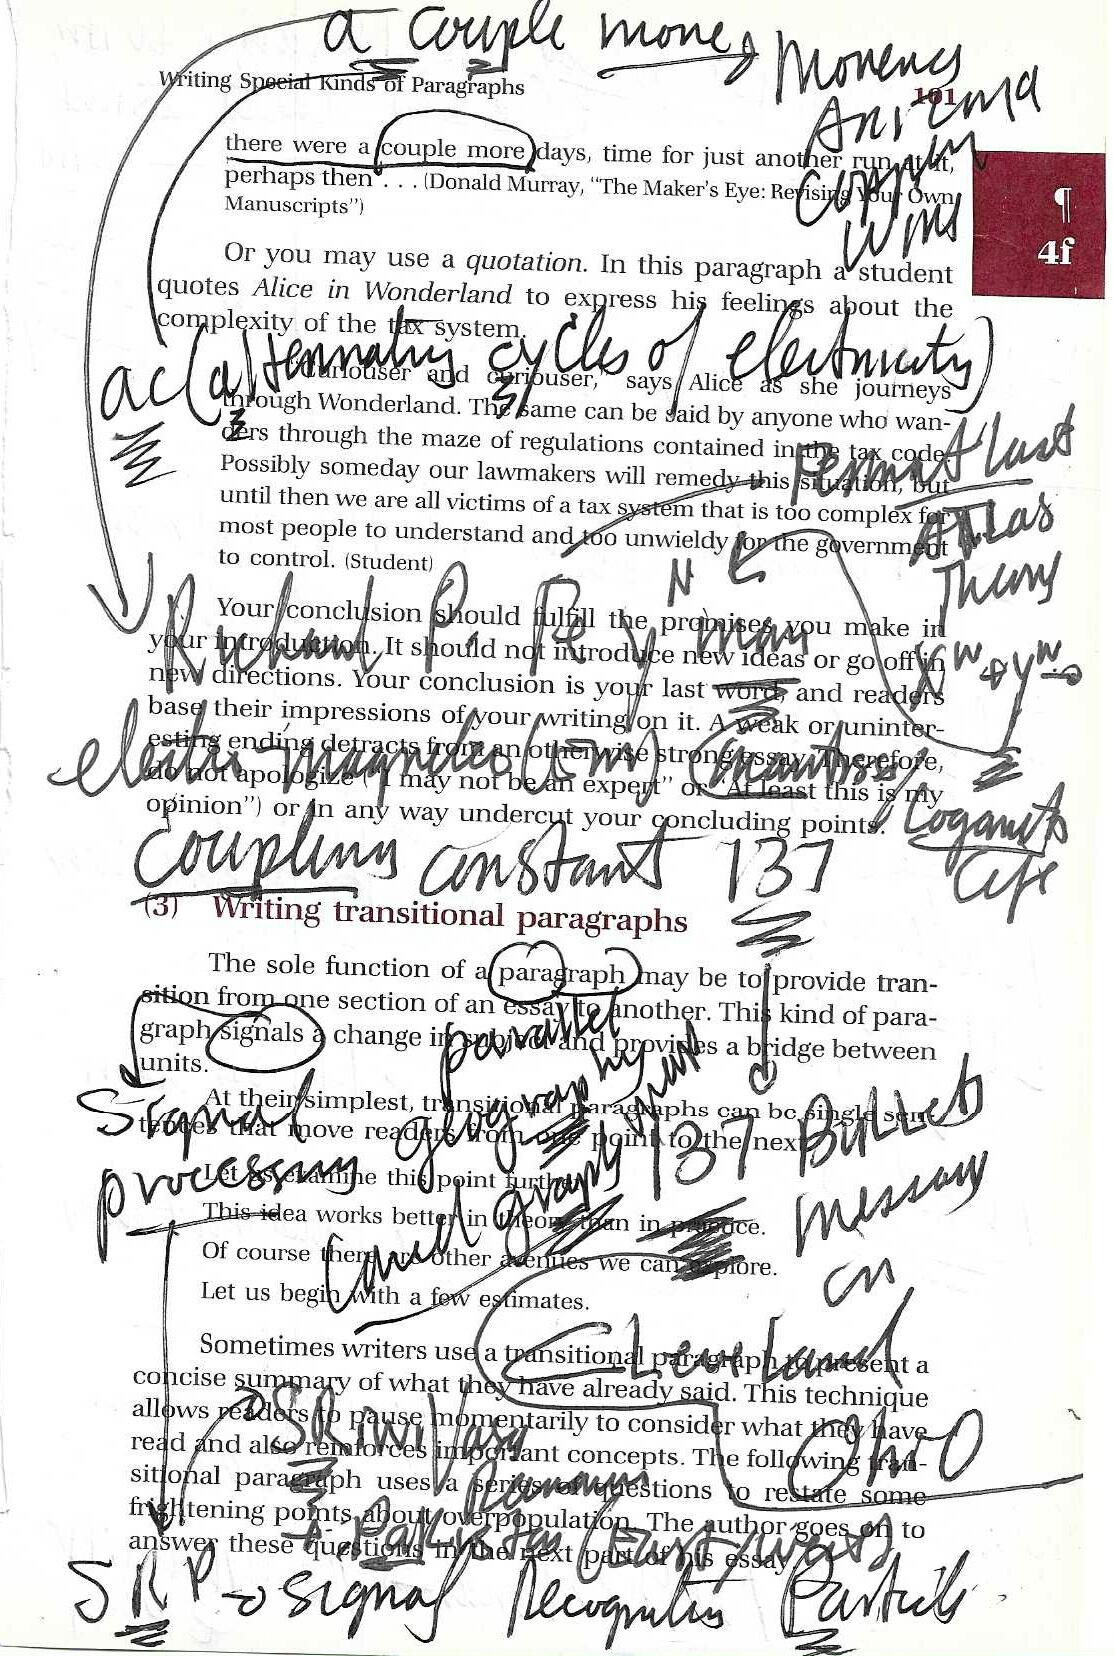 a couple mone
Writing Special Kinds of Paragraphs
101
Monency
Arizona
Win
there were a couple more days, time for just another run at it,
perhaps then . . . (Donald Murray, “The Maker’s Eye: Revising Your Own
Manuscripts”)
¶
4f
Or you may use a quotation. In this paragraph a student
quotes Alice in Wonderland to express his feelings about the
complexity of the tax system.
ac (alternating cycles of electricity)
“Curiouser and curiouser,” says Alice as she journeys
through Wonderland. The same can be said by anyone who wan-
ders through the maze of regulations contained in the tax code.
Possibly someday our lawmakers will remedy this situation, but
until then we are all victims of a tax system that is too complex for
most people to understand and too unwieldy for the government
to control. (Student)
Fermat last
Atlas
Theory
Richard P. Feynman
xⁿ + yⁿ
Your conclusion should fulfill the promises you make in
your introduction. It should not introduce new ideas or go off in
new directions. Your conclusion is your last word, and readers
base their impressions of your writing on it. A weak or uninter-
esting ending detracts from an otherwise strong essay. Therefore,
do not apologize (“I may not be an expert” or “At least this is my
opinion”) or in any way undercut your concluding points.
electro-magnetic (Em)
coupling constant 137
(3) Writing transitional paragraphs
The sole function of a paragraph may be to provide tran-
sition from one section of an essay to another. This kind of para-
graph signals a change in subject and provides a bridge between
units.
parallel
Signal
processing
At their simplest, transitional paragraphs can be single sen-
tences that move readers from one point to the next.
137 Bullets
on
Cleveland
Ohio
Let us examine this point further.
This idea works better in theory than in practice.
Of course there are other avenues we can explore.
Let us begin with a few estimates.
Sometimes writers use a transitional paragraph to present a
concise summary of what they have already said. This technique
allows readers to pause momentarily to consider what they have
read and also reinforces important concepts. The following tran-
sitional paragraph uses a series of questions to restate some
frightening points about overpopulation. The author goes on to
answer these questions in the next part of his essay.
SRiniVasa
+ Pakistan (East/West)
SRP → signal Recognition Particle